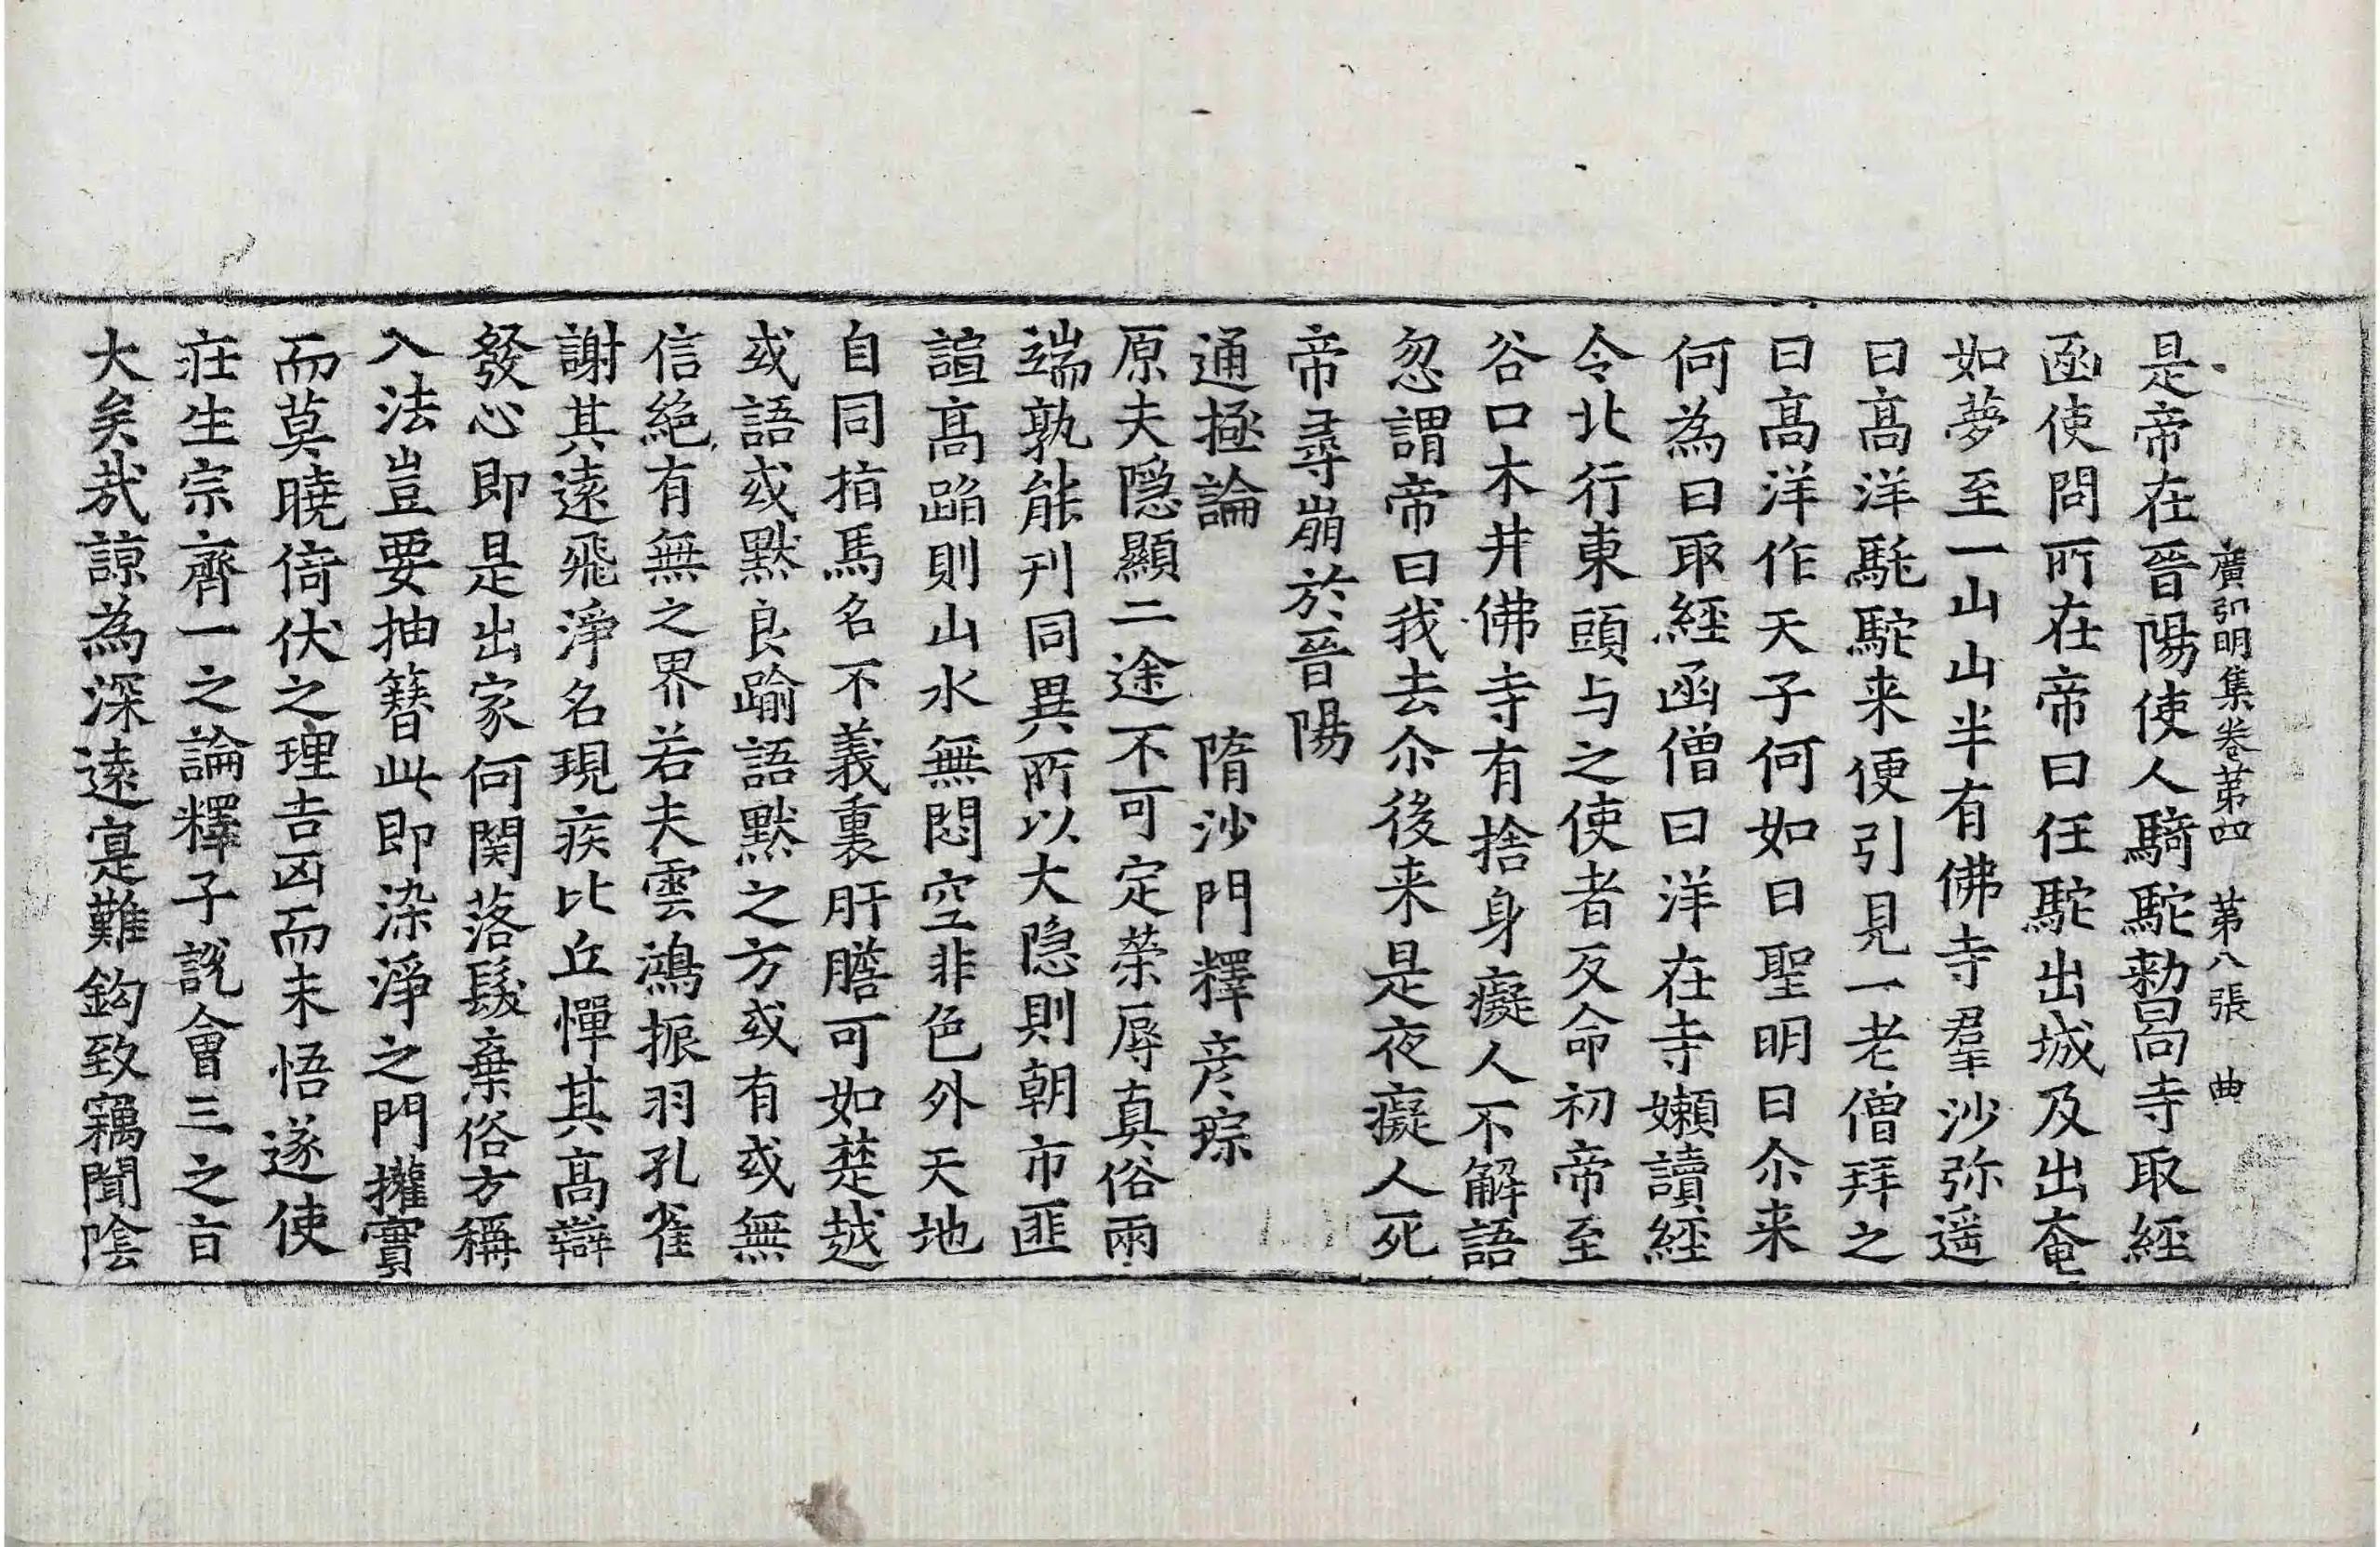 廣弘明集卷苐四　苐八張　曲
是帝在晉陽使人騎駝勑曰向寺取經
函使問所在帝曰任駝出城及出奄
如夢至一山山半有佛寺羣沙弥遥
曰髙洋駞駝来便引見一老僧拜之
曰髙洋作天子何如曰聖明曰尒来
何為曰取經函僧曰洋在寺嬾讀經
令北行東頭与之使者反命初帝至
谷口木井佛寺有捨身癡人不解語
忽謂帝曰我去尒後来是夜癡人死
帝尋崩於晉陽
通極論　　隋沙門釋彦琮
原夫隠顯二途不可定榮辱真俗兩
端孰能刊同異所以大隠則朝市匪
諠髙蹈則山水無悶空非色外天地
自同指馬名不義裏肝膽可如楚越
或語或默良踰語默之方或有或無
信絶有無之界若夫雲鴻振羽孔雀
謝其遠飛淨名現疾比丘憚其髙辯
發心即是出家何関落髮棄俗方稱
入法豈要抽簪此即染淨之門權實
而莫曉倚伏之理吉凶而未悟遂使
莊生宗齊一之論釋子說會三之旨
大矣哉諒為深遠寔難鈎致竊聞陰